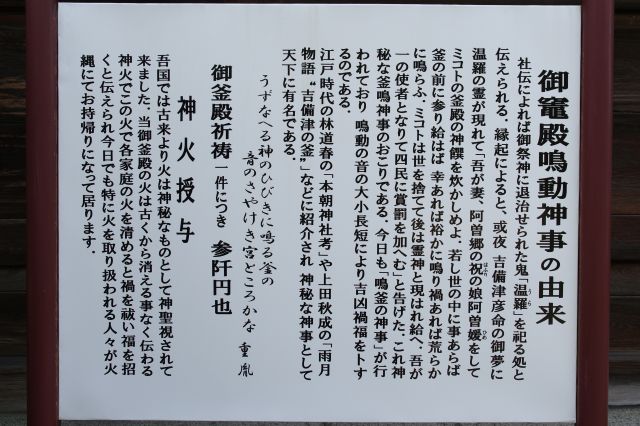 御竈殿鳴動神事の由来
社伝によれば御祭神に退治せられた鬼「温羅」を祀る処と
伝えられる。縁起によると、或夜 吉備津彦命の御夢に
温羅の霊が現れて「吾が妻、阿曽郷の祝の娘阿曽媛をして
ミコトの釜殿の神饌を炊かしめよ。若し世の中に事あらば
釜の前に参り給はば 幸あれば裕かに鳴り禍あれば荒らか
に鳴らふ。ミコトは世を捨てて後は霊神と現はれ給へ、吾が
一の使者となりて四民に賞罰を加へむ」と告げた。これ神
秘な釜鳴神事のおこりである。今日も「鳴釜の神事」が行
われており 鳴動の音の大小長短により吉凶禍福を卜す
るのである。
江戸時代の林道春の「本朝神社考」や上田秋成の「雨月
物語 “吉備津の釜”」などに紹介され 神秘な神事として
天下に有名である。
うずなへる神のひびきに鳴る釜の
音のさやけき宮どころかな 重胤
御釜殿祈祷 一件につき 参阡円也
神火授与
吾国では古来より火は神秘なものとして神聖視されて
来ました。当御釜殿の火は古くから消える事なく伝わる
神火でこの火で各家庭の火を清めると禍を祓い福を招
くと伝えられ今日でも特に火を取り扱われる人々が火
縄にてお持帰りになって居ります。